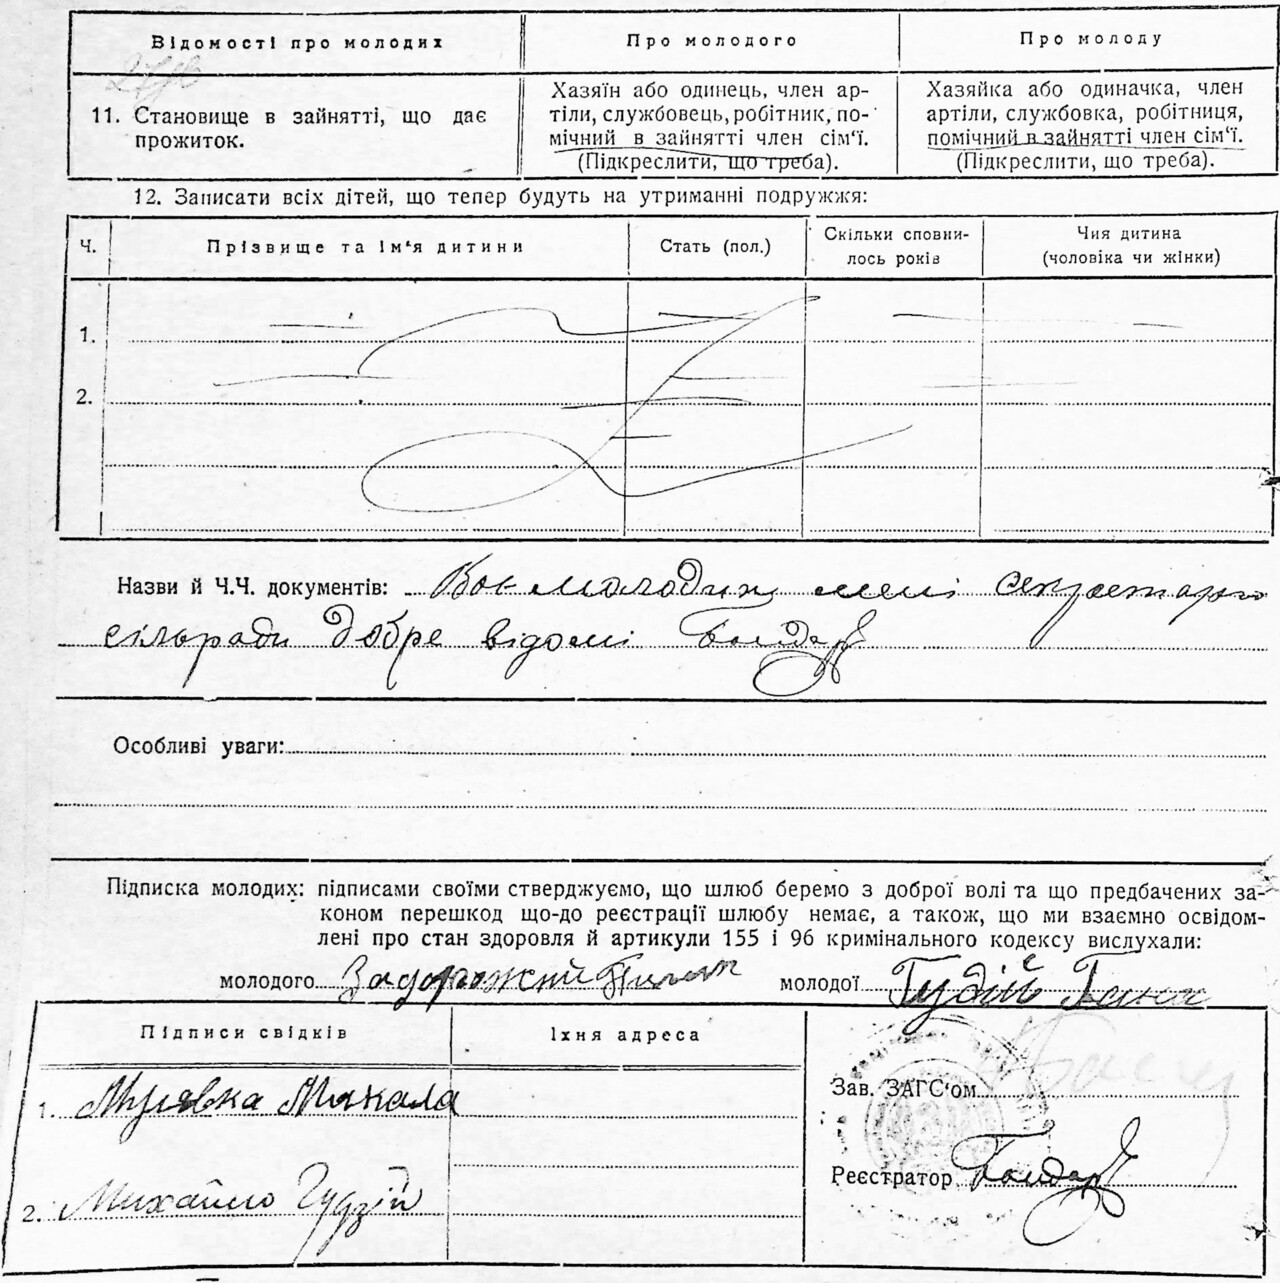 Відомості про молодих
Про молодого
Про молоду
11. Становище в зайнятті, що дає
прожиток.
Хазяїн або одинець, член ар-
тіли, службовець, робітник, по-
мічний в зайнятті член сім‘ї.
(Підкреслити, що треба).
Хазяйка або одиначка, член
артіли, службовка, робітниця,
помічний в зайнятті член сім‘ї.
(Підкреслити, що треба).
12. Записати всіх дітей, що тепер будуть на утриманні подружжя:
Ч.
Прізвище та ім‘я дитини
Стать (пол.)
Скільки сповни-
лось років
Чия дитина
(чоловіка чи жінки)
1.
2.
Назви й Ч.Ч. документів: молодих мені секретарю
сільради добре відомі Бондар
Особливі уваги:
Підписка молодих: підписами своїми стверджуємо, що шлюб беремо з доброї волі та що предбачених за-
коном перешкод що-до реєстрації шлюбу немає, а також, що ми взаємно освідом-
лені про стан здоровля й артикули 155 і 96 кримінального кодексу вислухали:
молодого Задорожний молодої Гудзій Ганна
Підписи свідків
Їхня адреса
1. Микола
2. Михайло Гудзій
Зав. ЗАГС‘ом
Реєстратор Бондар